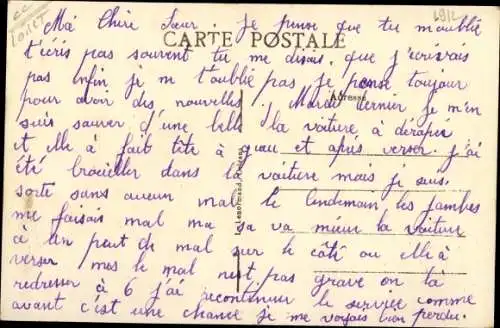 Ma Chère Sœur, je pense que tu m'oublié
CARTE POSTALE
t'écris pas souvent tu me disais que j'écrivais
pas enfin je ne t'oublié pas je pense toujour
Adresse
pour avoir des nouvelles. Mardi dernier je m'en
suis sauver d'une belle la voiture a dérapée
et elle a fait tête à queau et apres verser. j'ai
été brouieller dans la voiture mais je suis
sorte sans aucun mal le lendemain les jambes
me faisais mal ma sa va mieux la voiture
à un peut de mal sur le côté ou elle à
verser mes le mal n'est pas grave on la
redresser à 6 j'ai recontenuer le service comme
avant c'est une chance je me voyais bien perdu.